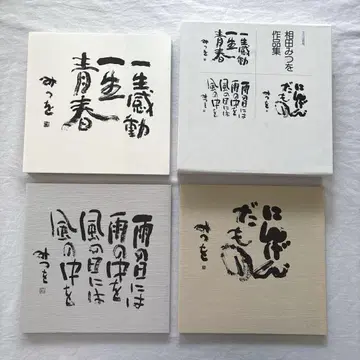 一生感動
一生青春
みつを
相田みつを
作品集
一生感動
一生青春
みつを
雨の日には
雨の中を
風の日には
風の中を
みつを
にんげん
だもの
みつを
雨の日には
雨の中を
風の日には
風の中を
みつを
にんげん
だもの
みつを